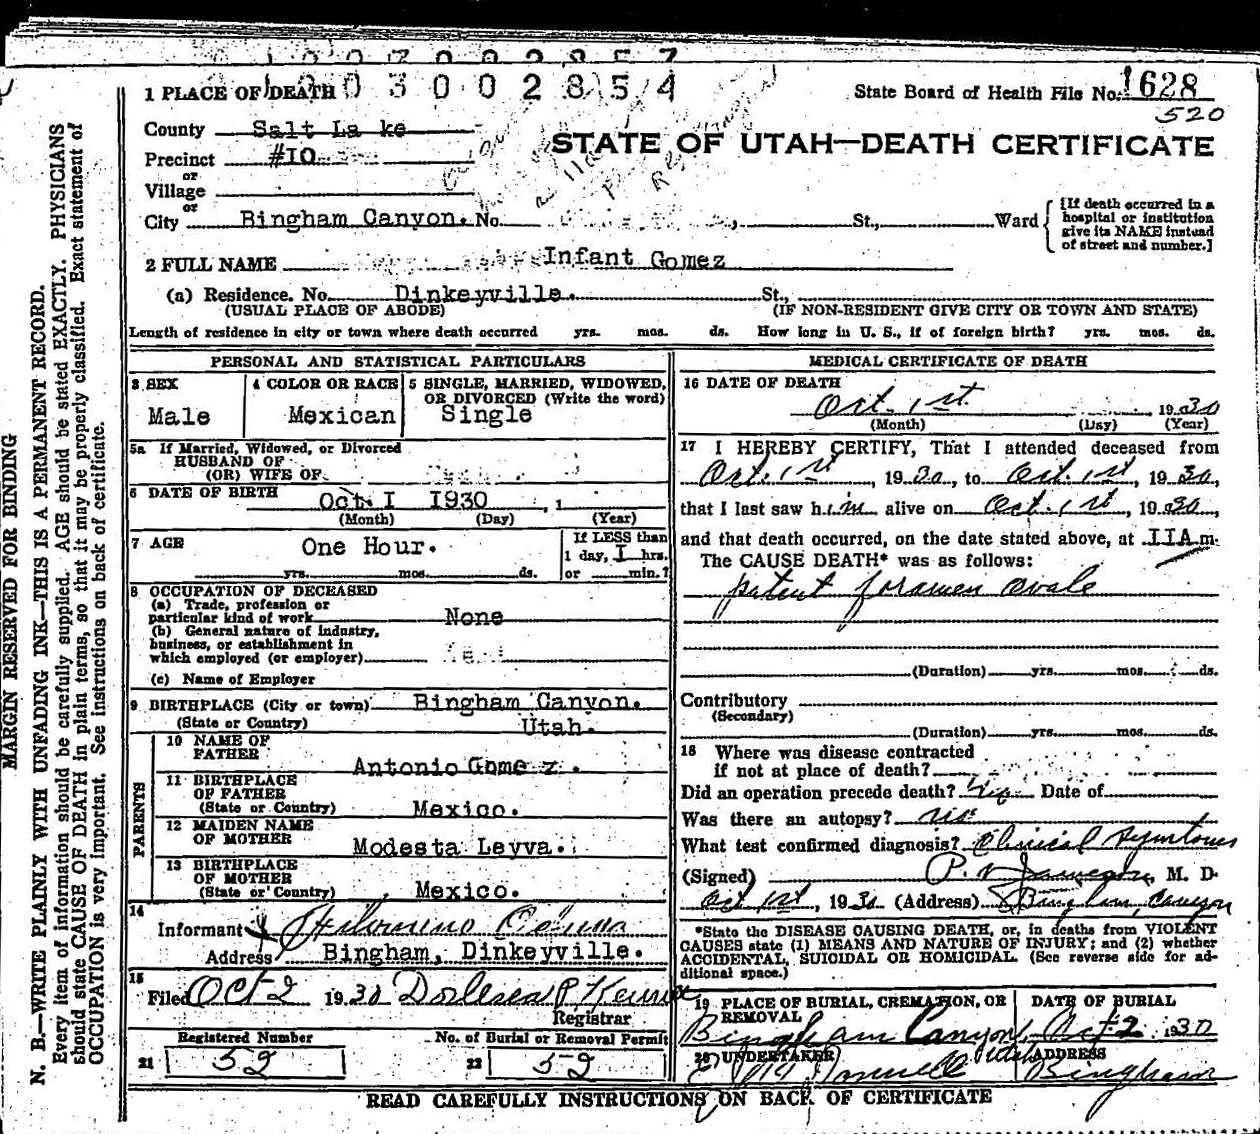 1003002857
1003002854
1 PLACE OF DEATH
State Board of Health File No. 1628
520
County Salt La ke
STATE OF UTAH—DEATH CERTIFICATE
Precinct #10
or
Village
or
City Bingham Canyon. No. St., Ward
[If death occurred in a
hospital or institution
give its NAME instead
of street and number.]
2 FULL NAME Infant Gomez
(a) Residence. No. Dinkeyville. St.,
(USUAL PLACE OF ABODE) (IF NON-RESIDENT GIVE CITY OR TOWN AND STATE)
Length of residence in city or town where death occurred yrs. mos. ds. How long in U. S., if of foreign birth? yrs. mos. ds.
PERSONAL AND STATISTICAL PARTICULARS
3 SEX
Male
4 COLOR OR RACE
Mexican
5 SINGLE, MARRIED, WIDOWED,
OR DIVORCED (Write the word)
Single
5a If Married, Widowed, or Divorced
HUSBAND OF
(OR) WIFE OF
6 DATE OF BIRTH
Oct. I 1930, 1
(Month) (Day) (Year)
7 AGE
One Hour.
yrs. mos. ds.
If LESS than
1 day, I hrs.
or min.?
8 OCCUPATION OF DECEASED
(a) Trade, profession or
particular kind of work None
(b) General nature of industry,
business, or establishment in
which employed (or employer)
(c) Name of Employer
9 BIRTHPLACE (City or town) Bingham Canyon.
(State or Country) Utah.
PARENTS
10 NAME OF
FATHER Antonio Gome z.
11 BIRTHPLACE
OF FATHER
(State or Country) Mexico.
12 MAIDEN NAME
OF MOTHER Modesta Leyva.
13 BIRTHPLACE
OF MOTHER
(State or Country) Mexico.
14
Informant
Address Bingham, Dinkeyville.
15
Filed Oct 2 1930
Registrar
Registered Number No. of Burial or Removal Permit
21 52 22 52
MEDICAL CERTIFICATE OF DEATH
16 DATE OF DEATH
Oct. 1st, 1930
(Month) (Day) (Year)
17 I HEREBY CERTIFY, That I attended deceased from
Oct. 1st, 1930, to Oct. 1st, 1930,
that I last saw him alive on Oct. 1st, 1930,
and that death occurred, on the date stated above, at IIA m.
The CAUSE DEATH* was as follows:
patent foramen ovale
(Duration) yrs. mos. ds.
Contributory
(Secondary)
(Duration) yrs. mos. ds.
18 Where was disease contracted
if not at place of death?
Did an operation precede death? no Date of
Was there an autopsy? no
What test confirmed diagnosis? Clinical Symtoms
(Signed) M. D.
Oct 1st, 1930 (Address) Bingham, Canyon
*State the DISEASE CAUSING DEATH, or, in deaths from VIOLENT
CAUSES state (1) MEANS AND NATURE OF INJURY; and (2) whether
ACCIDENTAL, SUICIDAL OR HOMICIDAL. (See reverse side for ad-
ditional space.)
19 PLACE OF BURIAL, CREMATION, OR
REMOVAL
Bingham Canyon, Utah
DATE OF BURIAL
Oct 2 1930
20 UNDERTAKER
ADDRESS
Bingham
READ CAREFULLY INSTRUCTIONS ON BACK OF CERTIFICATE
MARGIN RESERVED FOR BINDING
N. B.—WRITE PLAINLY WITH UNFADING INK—THIS IS A PERMANENT RECORD.
Every item of information should be carefully supplied. AGE should be stated EXACTLY. PHYSICIANS
should state CAUSE OF DEATH in plain terms, so that it may be properly classified. Exact statement of
OCCUPATION is very important. See instructions on back of certificate.